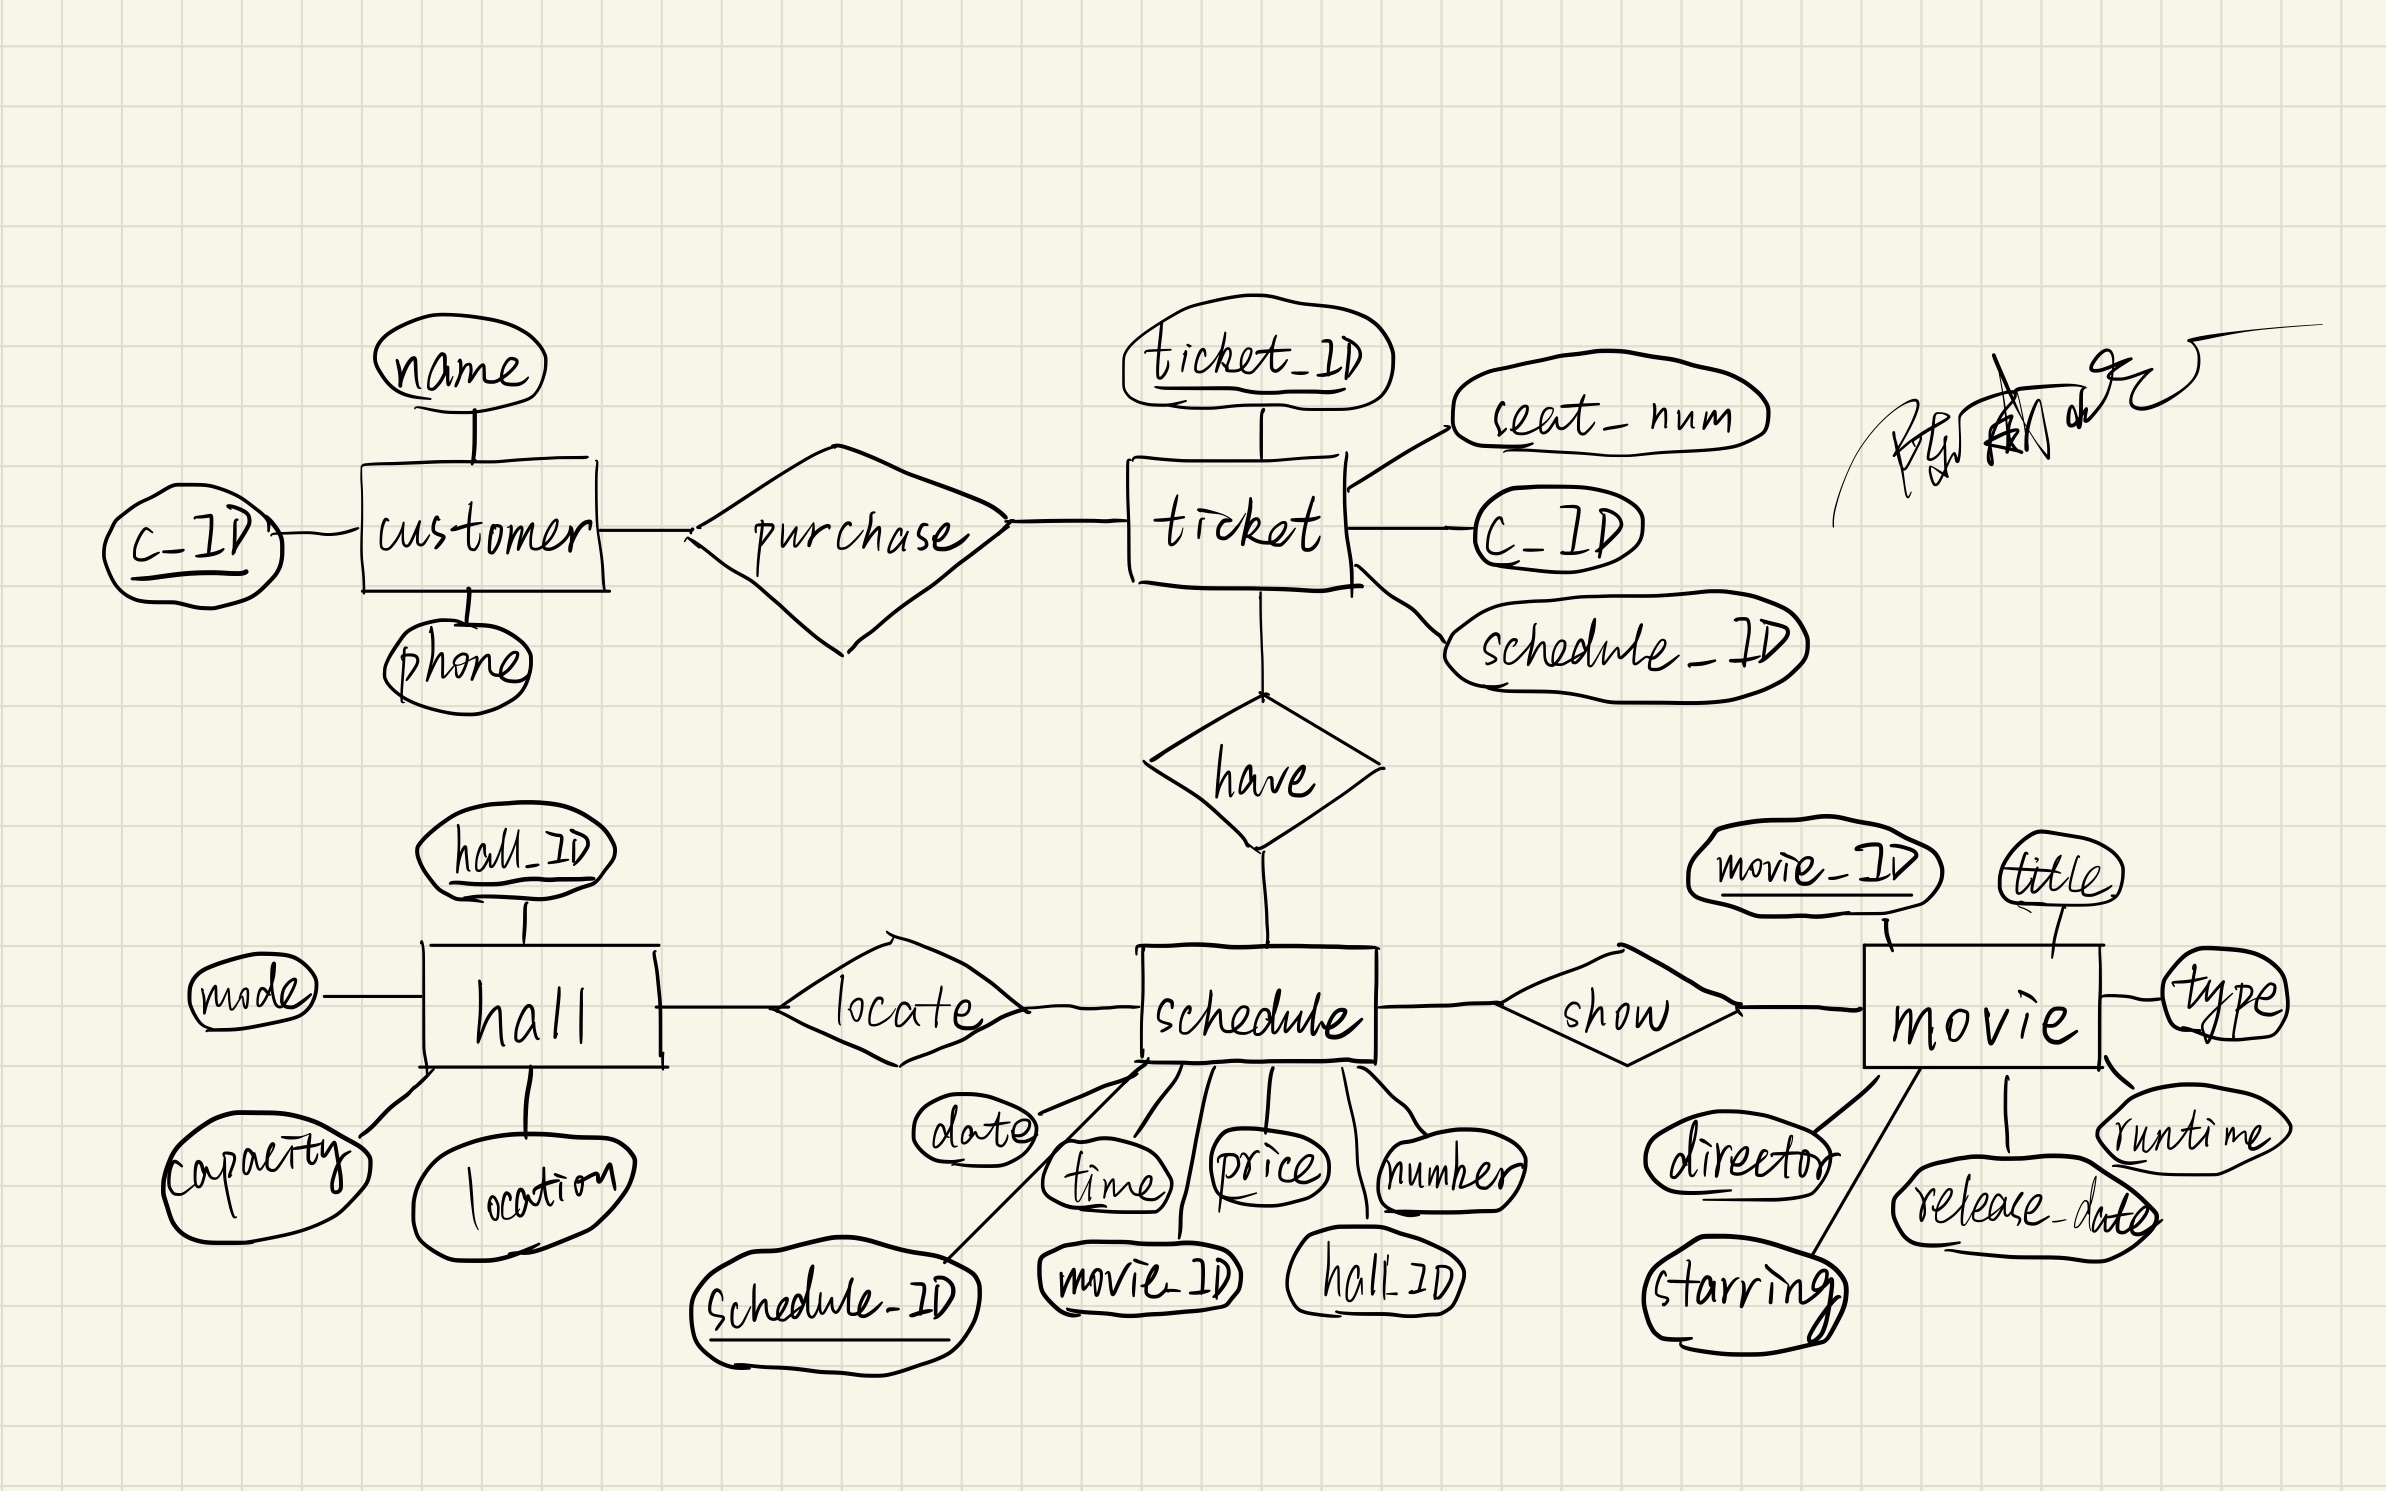 name
c_ID
customer
phone
purchase
ticket_ID
seat_num
ticket
c_ID
schedule_ID
have
hall_ID
mode
hall
capacity
location
locate
schedule
date
time
price
number
schedule_ID
movie_ID
hall_ID
show
movie_ID
title
movie
type
director
runtime
release_date
starring